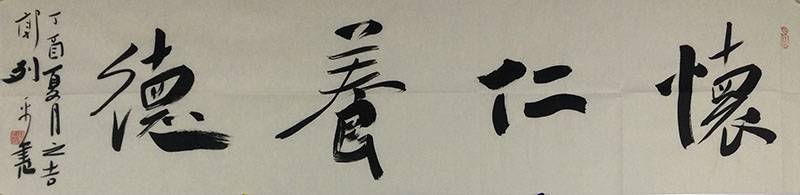 懷仁養德
丁酉夏月之吉
郭列平書